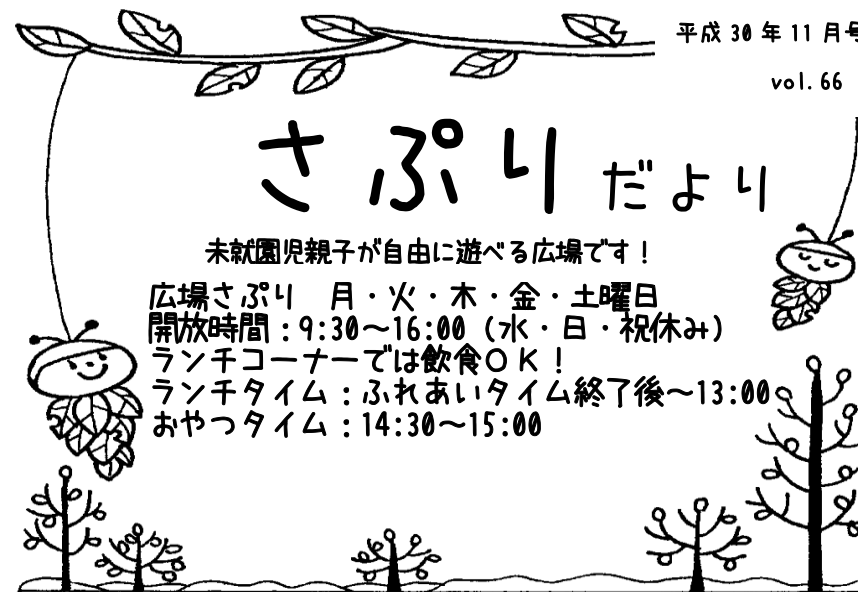 平成 30 年 11 月号
vol.66
さぷりだより
未就園児親子が自由に遊べる広場です！
広場さぷり　月・火・木・金・土曜日
開放時間：9:30～16:00（水・日・祝休み）
ランチコーナーでは飲食ＯＫ！
ランチタイム：ふれあいタイム終了後～13:00
おやつタイム：14:30～15:00